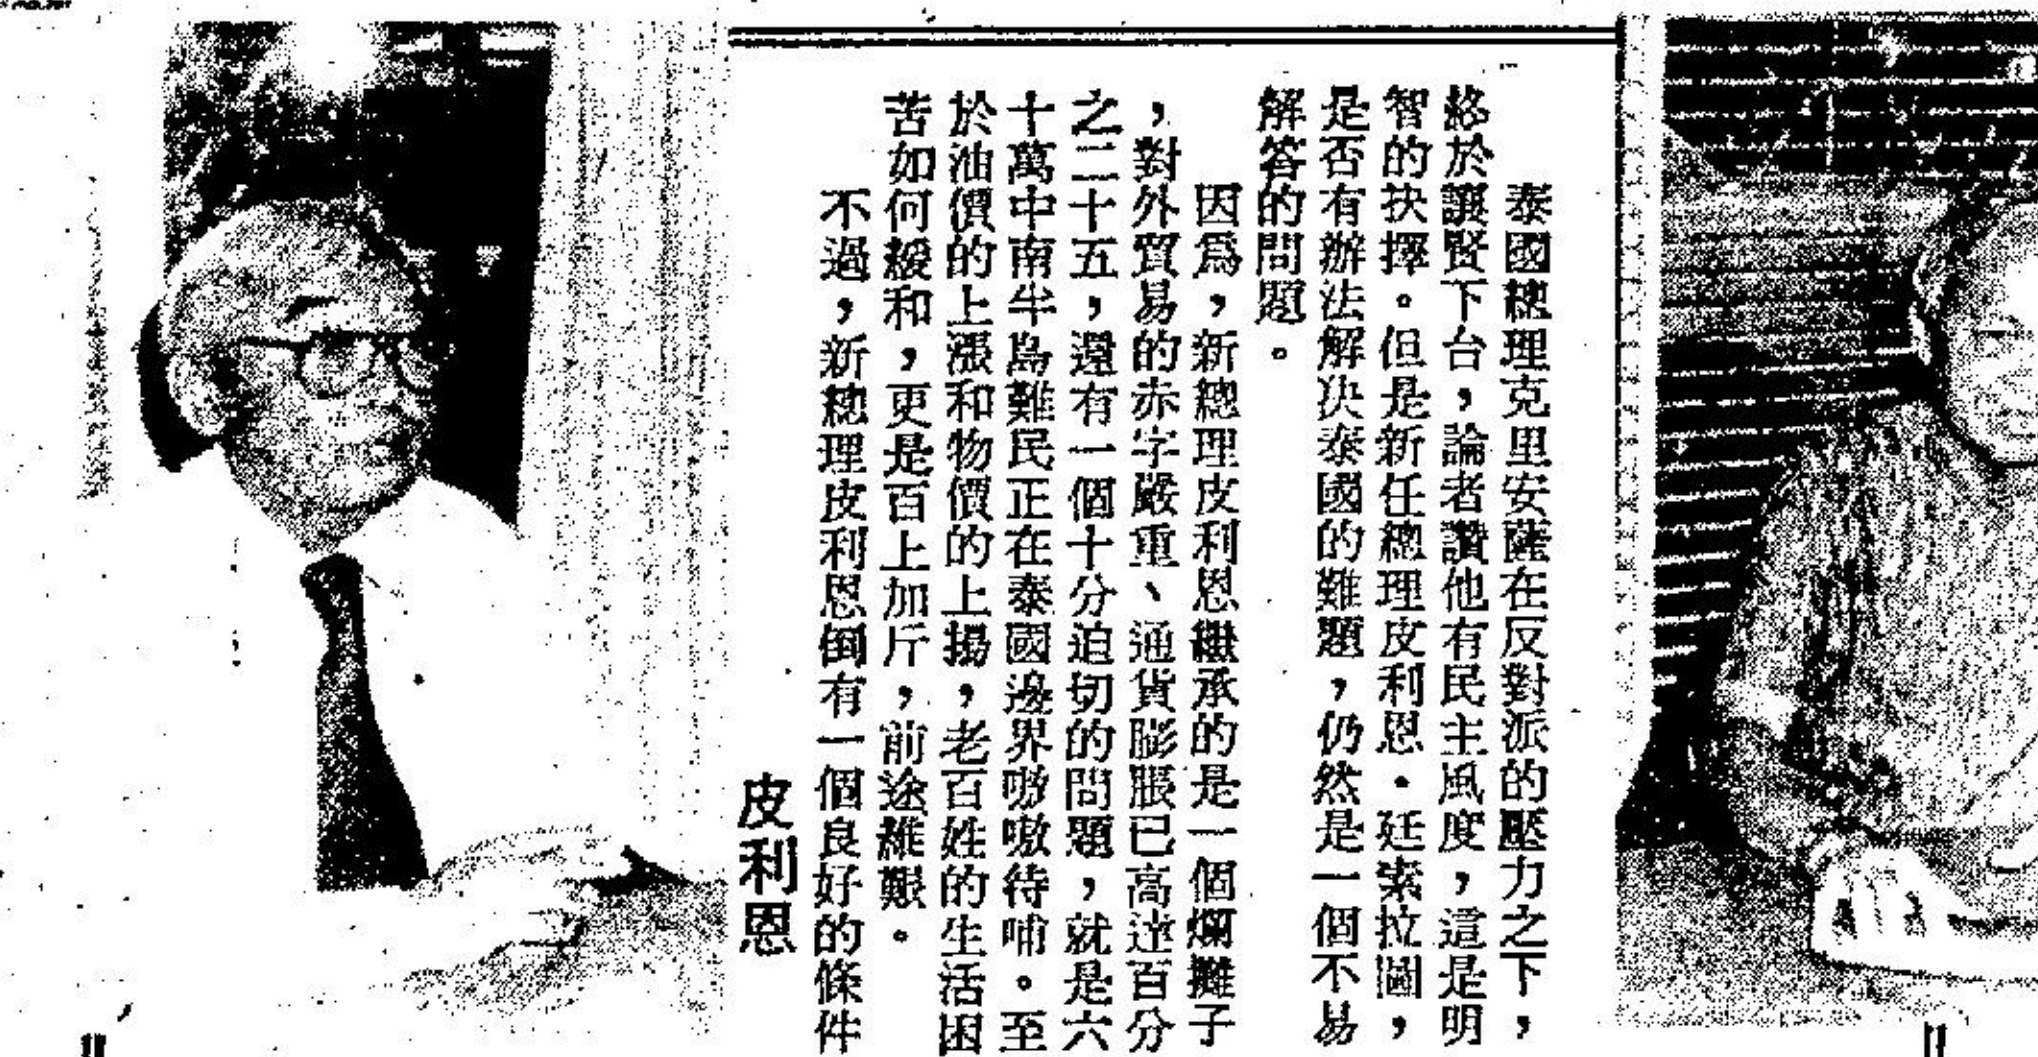 泰國總理克里安薩在反對派的壓力之下，
終於讓賢下台，論者讚他有民主風度，這是明
智的抉擇。但是新任總理皮利恩・廷索拉圖，
是否有辦法解決泰國的難題，仍然是一個不易
解答的問題。
因爲，新總理皮利恩繼承的是一個爛攤子
，對外貿易的赤字嚴重、通貨膨脹已高達百分
之二十五，還有一個十分迫切的問題，就是六
十萬中南半島難民正在泰國邊界嗷嗷待哺。至
於油價的上漲和物價的上揚，老百姓的生活困
苦如何緩和，更是百上加斤，前途維艱。
不過，新總理皮利恩倒有一個良好的條件
皮利恩